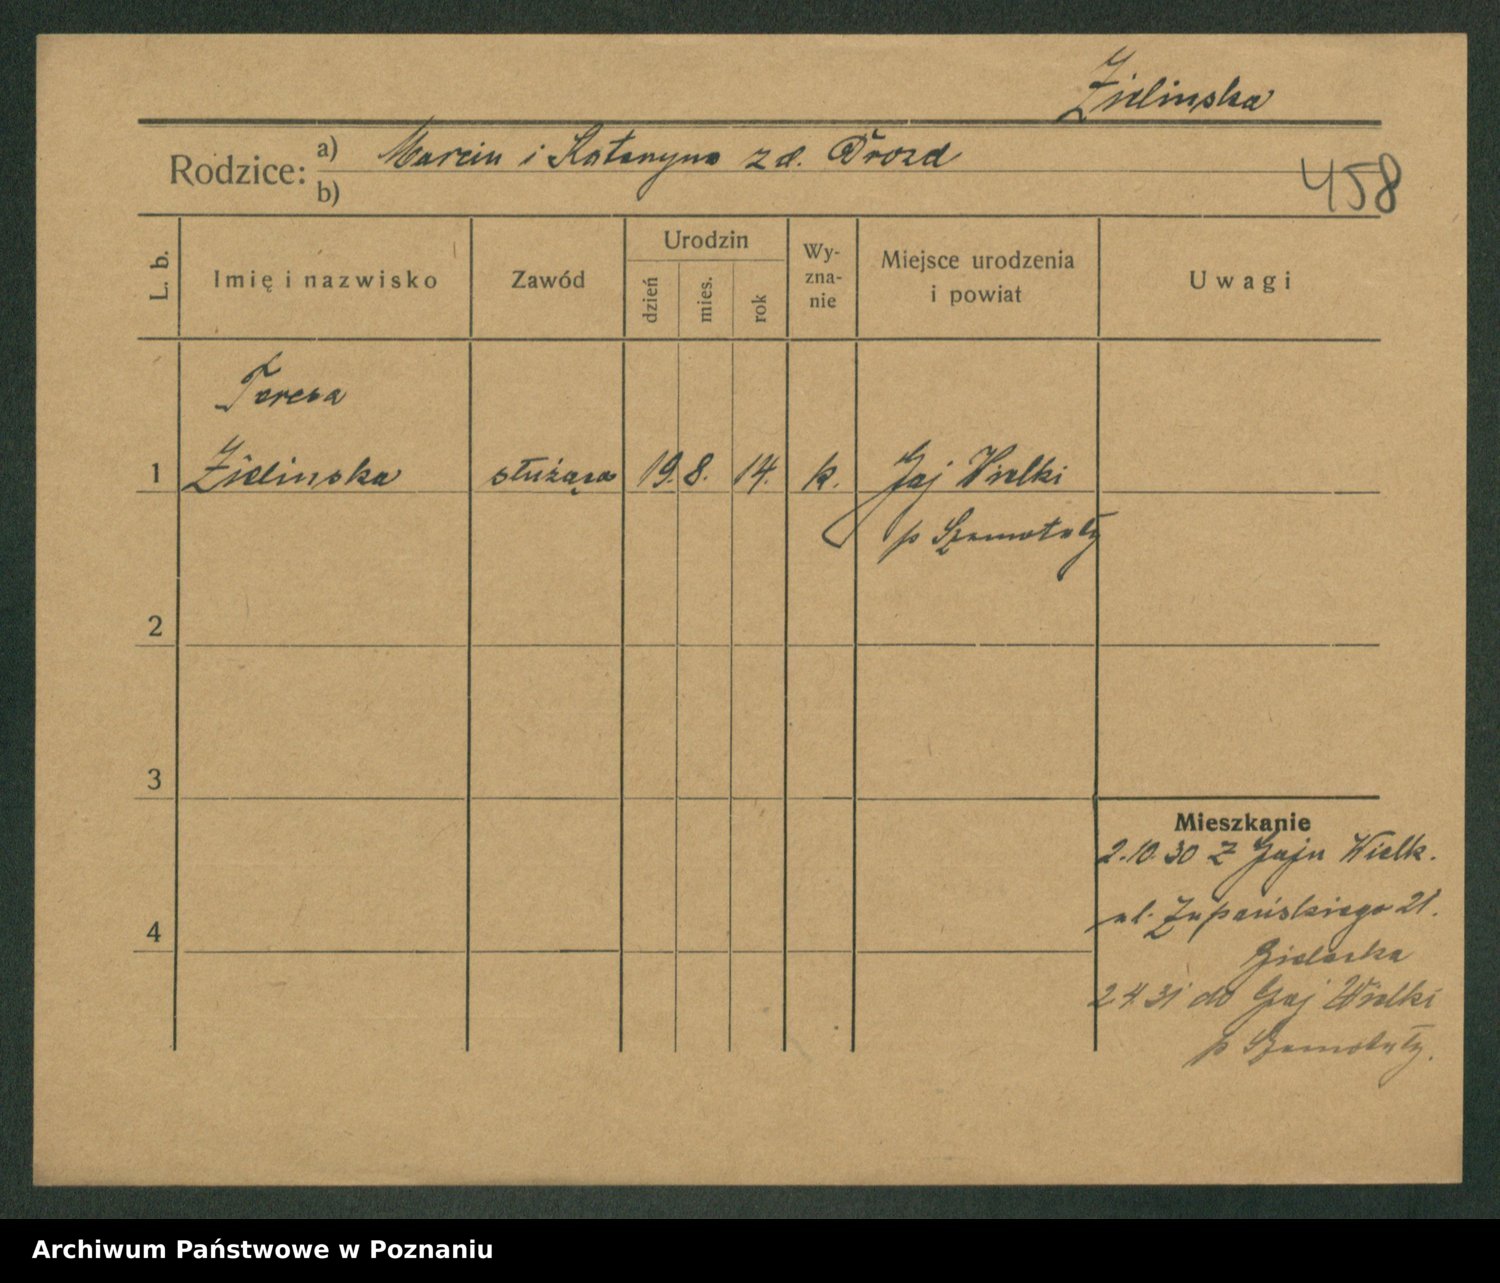 Zielinska
Rodzice: a) Marcin i Katarzyna z d. Drozd
b)
458
L. b.
Imię i nazwisko
Zawód
Urodzin
dzień
mies.
rok
Wy-
zna-
nie
Miejsce urodzenia
i powiat
Uwagi
Teresa
1 Zielinska służąca 19. 8. 14. k. Gaj Wielki
p Szamotuły
2
3
4
Mieszkanie
2.10.30 z Gaju Wielk.
ul. Żupańskiego 21.
2 4 31 do Gaj Wielki
p Szamotuły.
Archiwum Państwowe w Poznaniu